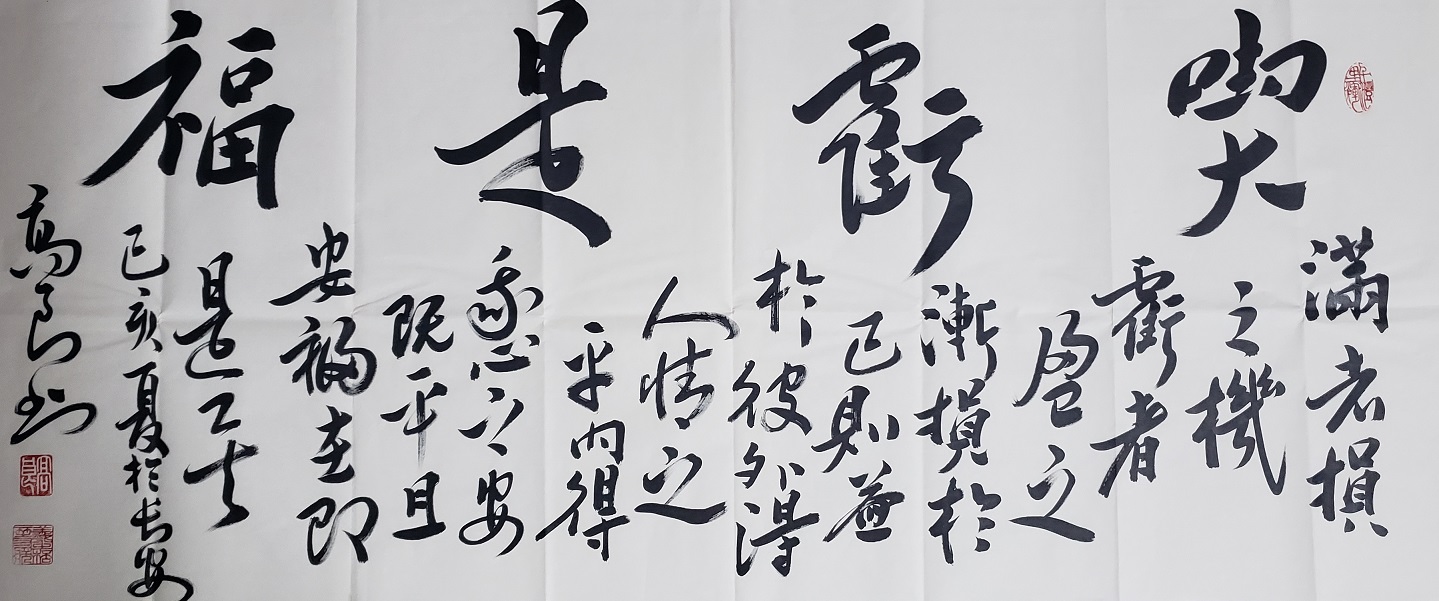 喫虧是福
滿者損
之機
虧者
盈之
漸損於
己則益
於彼外得
人情之
平內得
我心之安
既平且
安福在即
是矣
己亥夏於長安
高良